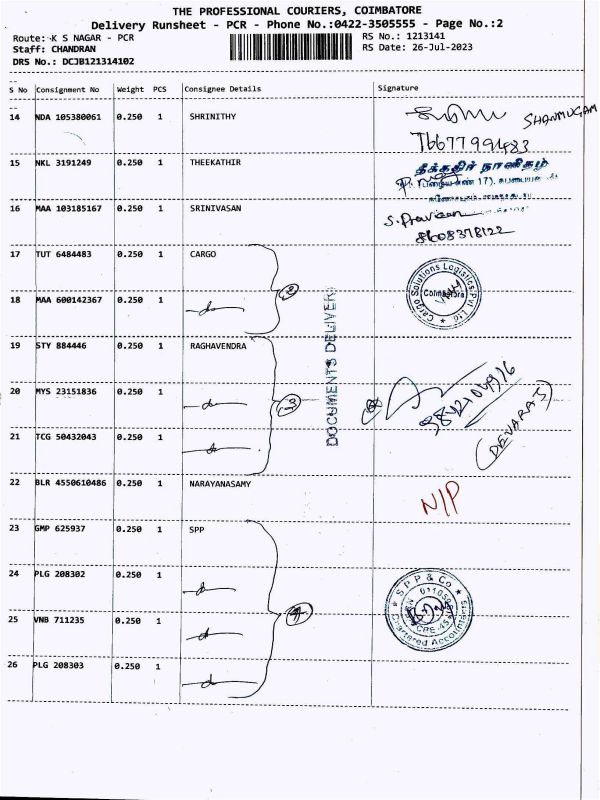 THE PROFESSIONAL COURIERS, COIMBATORE
Delivery Runsheet - PCR - Phone No.:0422-3505555 - Page No.:2
Route: K S NAGAR - PCR
RS No.: 1213141
Staff: CHANDRAN
RS Date: 26-Jul-2023
DRS No.: DCJB121314102
S No Consignment No Weight PCS Consignee Details Signature
14 NDA 105380061 0.250 1 SHRINITHY
SHANMUGAM
15 NKL 3191249 0.250 1 THEEKATHIR
தீக்கதிர் நாளிதழ்
16 MAA 103185167 0.250 1 SRINIVASAN
S. Praveen
8608378122
17 TUT 6484483 0.250 1 CARGO
Cargo Solutions Logistics Pvt Ltd
Coimbatore
18 MAA 600142367 0.250 1
2
DOCUMENTS DELIVERY
19 STY 884446 0.250 1 RAGHAVENDRA
20 MYS 23151836 0.250 1
3
(DEVARAJ)
21 TCG 50432043 0.250 1
22 BLR 4550610486 0.250 1 NARAYANASAMY
N/P
23 GMP 625937 0.250 1 SPP
24 PLG 208302 0.250 1
S P P & Co
Chartered Accountants
25 VNB 711235 0.250 1
4
26 PLG 208303 0.250 1